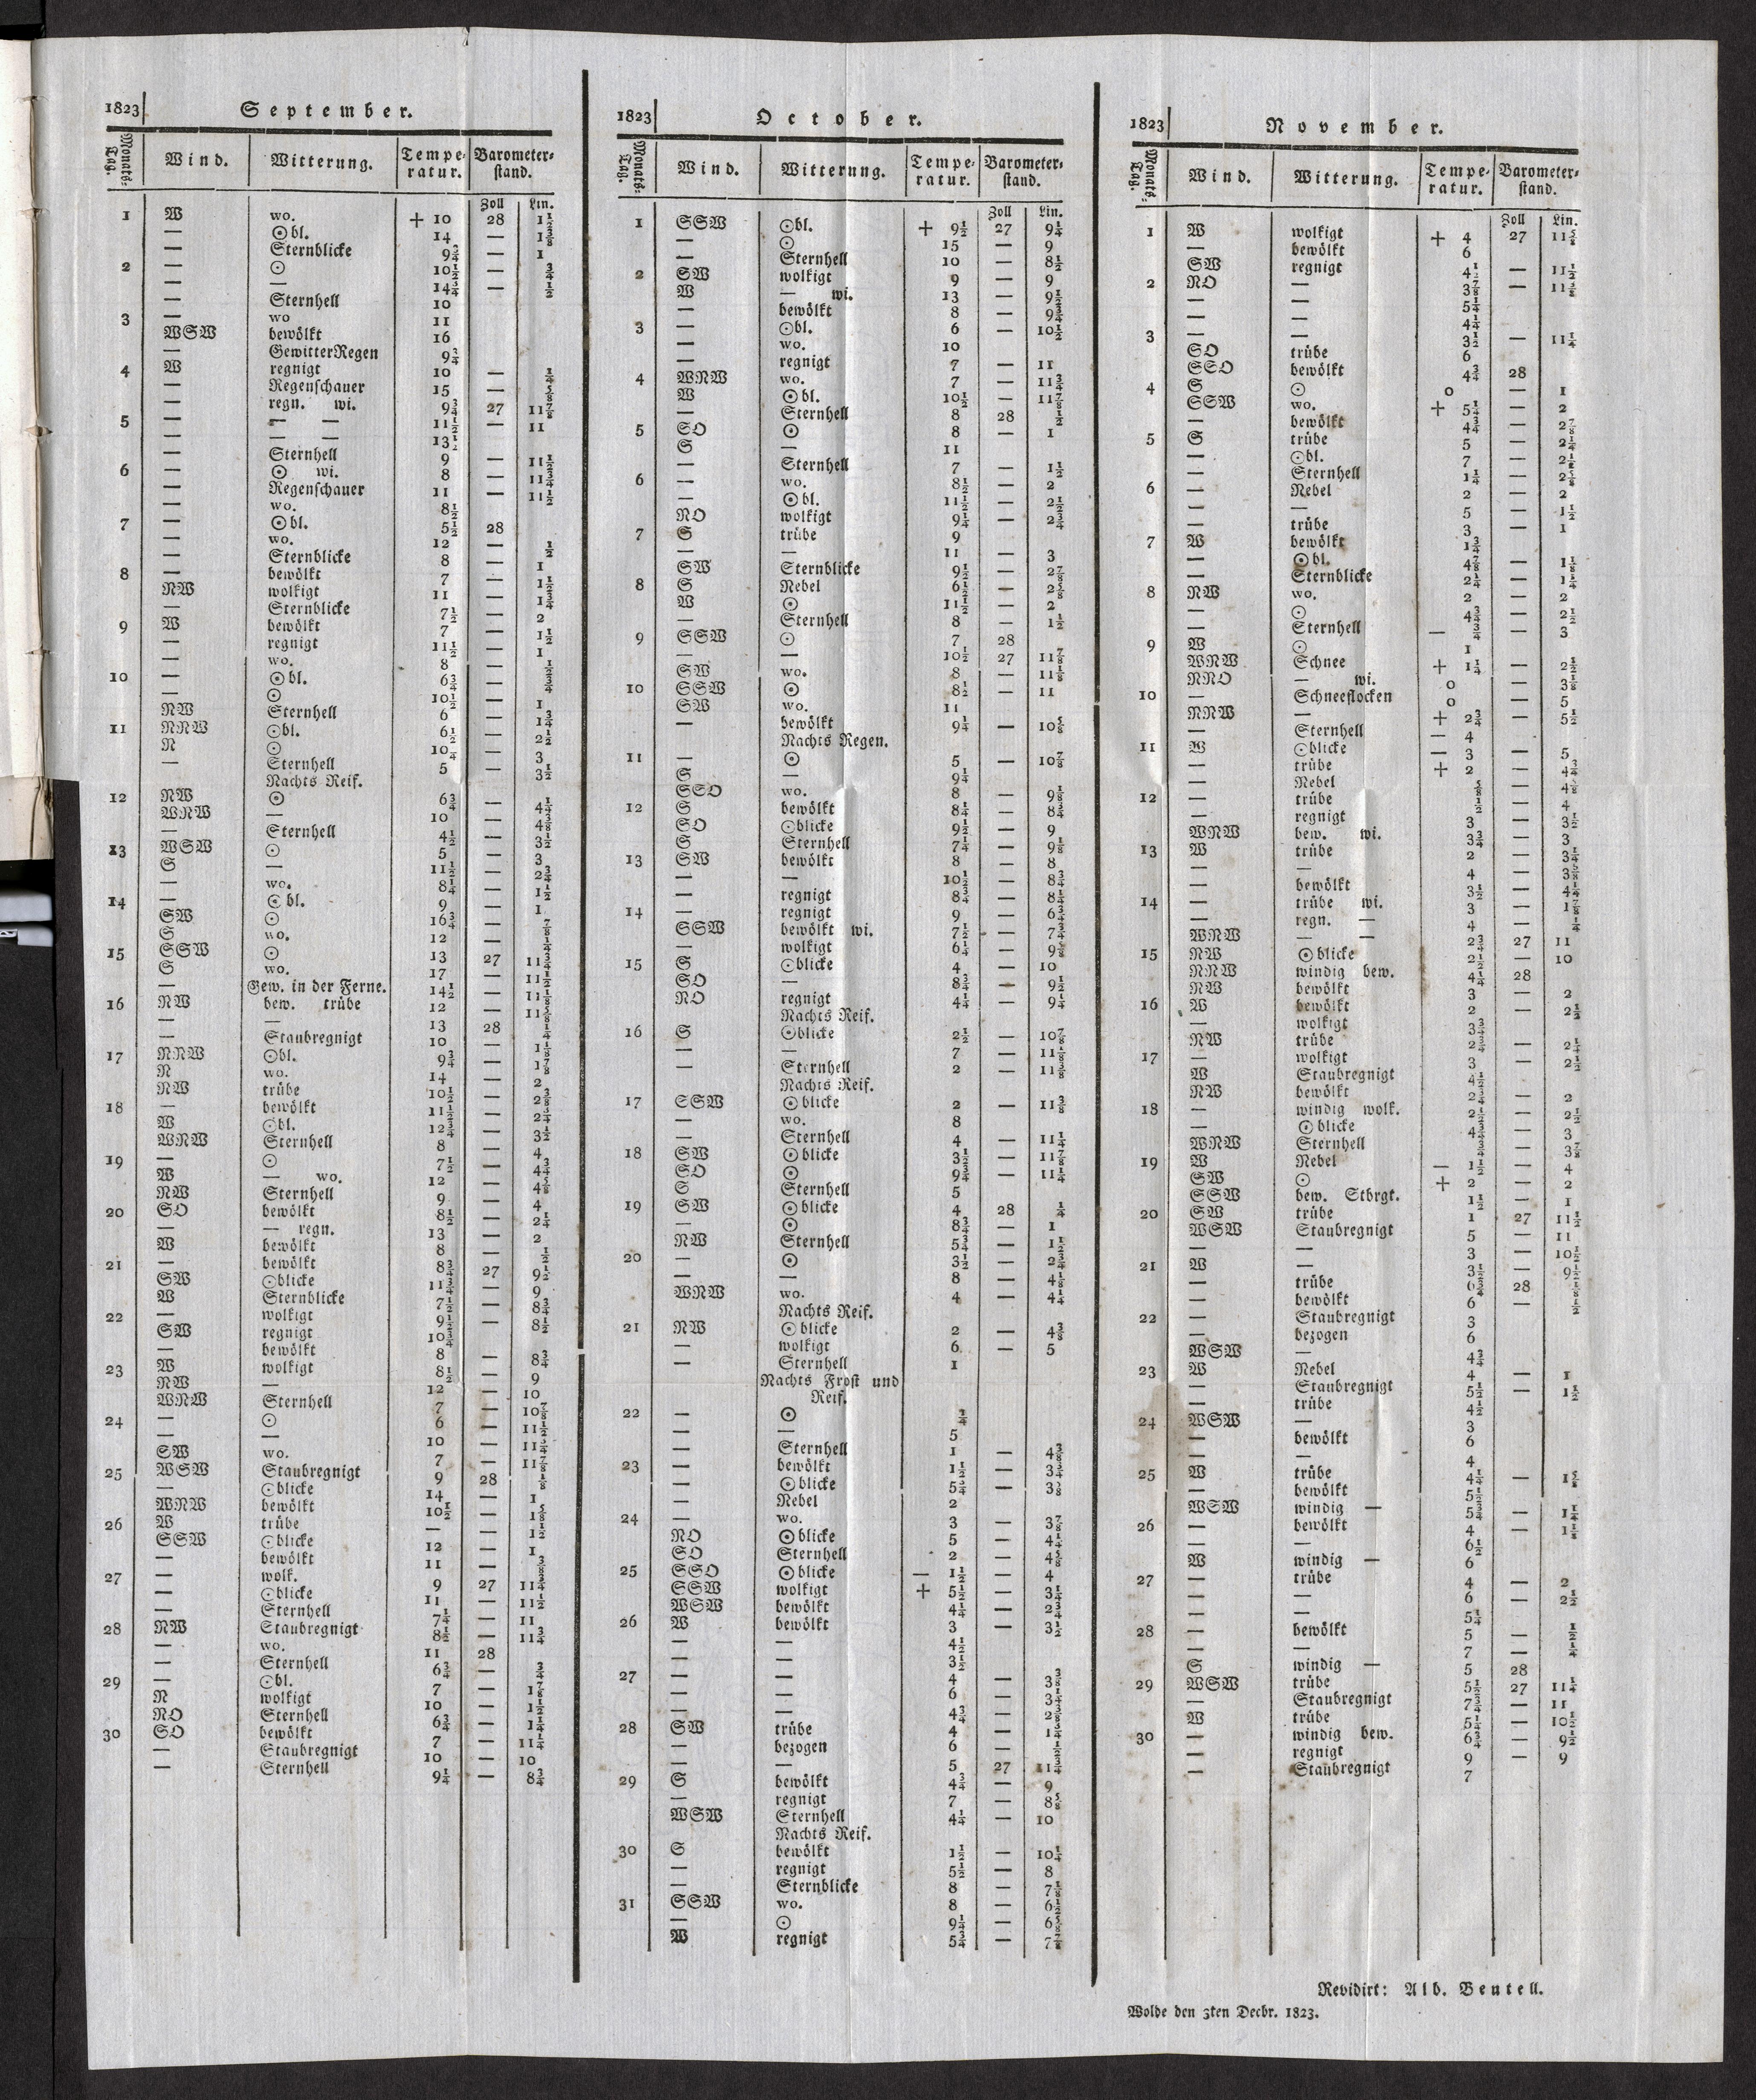 1823 September.
Monats-Tag. Wind. Witterung. Tempe-ratur. Barometer-stand.
Zoll Lin.
1 W wo. + 10 28 1½
— ⊙bl. 14 — 1⅜
— Sternblicke 9¾ — 1
2 — ⊙ 10½ — ¾
— — 14¾ — ½
— Sternhell 10
3 — wo 11
WSW bewölkt 16
— GewitterRegen 9¾
4 W regnigt 10 — ¼
— Regenschauer 15 — ⅝
— regn. wi. 9¾ 27 11⅞
5 — — — 11½ — 11
— — — 13½
— Sternhell 9 — 11½
6 — ⊙ wi. 8 — 11¾
— Regenschauer 11 — 11½
— wo. 8½
7 — ⊙bl. 5½ 28
— wo. 12 — ½
— Sternblicke 8 — 1
8 — bewölkt 7 — 1½
NW wolkigt 11 — 1¾
— Sternblicke 7½ — 2
9 W bewölkt 7 — 1½
— regnigt 11½ — 1
— wo. 8 — ½
10 — ⊙bl. 6¾ — ¾
— ⊙ 10½ — 1
NW Sternhell 6 — 1¾
11 NNW ⊙bl. 6½ — 2½
N ⊙ 10¼ — 3
— Sternhell 5 — 3½
Nachts Reif.
12 NW ⊙ 6¾ — 4¼
WNW — 10 — 4⅜
— Sternhell 4½ — 3½
13 WSW ⊙ 5 — 3
S — 11½ — 2¾
— wo. 8¼ — 1½
14 — ⊙bl. 9 — 1
SW ⊙ 16¾ — ⅞
S wo. 12 — ¼
15 SSW ⊙ 13 27 11¾
S wo. 17 — 11½
— Gew. in der Ferne. 14½ — 11⅛
16 NW bew. trübe 12 — 11⅝
— — 13 28 ¼
— Staubregnigt 10 — 1⅛
17 NNW ⊙bl. 9¾ — 1⅞
N wo. 14 — 2
NW trübe 10½ — 2⅜
18 — bewölkt 11½ — 2¾
W ⊙bl. 12¾ — 3½
WNW Sternhell 8 — 4
19 — ⊙ 7½ — 4¾
W — wo. 12 — 4⅝
NW Sternhell 9 — 4
20 SO bewölkt 8½ — 2¼
— — regn. 13 — 2
W bewölkt 8 — ½
21 — bewölkt 8¾ 27 9½
SW ⊙blicke 11¾ — 9
W Sternblicke 7½ — 8¾
22 — wolkigt 9½ — 8½
SW regnigt 10¾
— bewölkt 8 — 8¾
23 W wolkigt 8½ — 9
NW — 12 — 10
WNW Sternhell 7 — 10⅞
24 — ⊙ 6 — 11½
— — 10 — 11¾
SW wo. 7 — 11⅞
25 WSW Staubregnigt 9 28 ⅛
— ⊙blicke 14 — 1
WNW bewölkt 10½ — 1⅝
26 W trübe — — 1½
SSW ⊙blicke 12 — 1
— bewölkt 11 — ⅜
27 — wolk. 9 27 11¾
— ⊙blicke 11 — 11½
— Sternhell 7¼ — 11
28 NW Staubregnigt 8½ — 11¾
— wo. 11 28
— Sternhell 6¾ — ¾
29 — ⊙bl. 7 — 1⅞
N wolkigt 10 — 1½
NO Sternhell 6¾ — 1¼
30 SO bewölkt 7 — 11¼
— Staubregnigt 10 — 10
— Sternhell 9¼ — 8¾
1823 October.
Monats-Tag. Wind. Witterung. Tempe-ratur. Barometer-stand.
Zoll Lin.
1 SSW ⊙bl. + 9½ 27 9¼
— ⊙ 15 — 9
— Sternhell 10 — 8½
2 SW wolkigt 9 — 9
W — wi. 13 — 9½
— bewölkt 8 — 9¾
3 — ⊙bl. 6 — 10½
— wo. 10
— regnigt 7 — 11
4 WNW wo. 7 — 11¾
W ⊙bl. 10½ — 11⅞
— Sternhell 8 28 ½
5 SO ⊙ 8 — 1
S — 11
— Sternhell 7 — 1½
6 — wo. 8½ — 2
— ⊙bl. 11½ — 2½
NO wolkigt 9¼ — 2¾
7 S trübe 9
— — 11 — 3
SW Sternblicke 9½ — 2⅞
8 S Nebel 6½ — 2⅝
W ⊙ 11½ — 2
— Sternhell 8 — 1½
9 SSW ⊙ 7 28
— — 10½ 27 11⅞
SW wo. 8 — 11⅛
10 SSW ⊙ 8½ — 11
SW wo. 11
— bewölkt 9¼ — 10⅝
Nachts Regen.
11 — ⊙ 5 — 10⅞
S — 9¼
SSO wo. 8 — 9⅝
12 S bewölkt 8¼ — 8¾
SO ⊙blicke 9½ — 9
S Sternhell 7¼ — 9⅝
13 SW bewölkt 8 — 8
— — 10½ — 8¾
— regnigt 8¾ — 8¼
14 — regnigt 9 — 6¾
SSW bewölkt wi. 7½ — 7¾
— wolkigt 6¼ — 9⅜
15 S ⊙blicke 4 — 10
SO — 8¾ — 9½
NO regnigt 4¼ — 9¼
Nachts Reif.
16 S ⊙blicke 2½ — 10⅞
— — 7 — 11⅛
— Sternhell 2 — 11⅜
Nachts Reif.
17 SSW ⊙blicke 2 — 11⅜
— wo. 8
— Sternhell 4 — 11¼
18 SW ⊙blicke 3½ — 11⅞
SO ⊙ 9¾ — 11¼
S Sternhell 5
19 SW ⊙blicke 4 28 ¼
— ⊙ 8¾ — 1
NW Sternhell 5¾ — 1½
20 — ⊙ 3½ — 2¾
— — 8 — 4⅛
WNW wo. 4 — 4¼
Nachts Reif.
21 NW ⊙blicke 2 — 4⅜
— wolkigt 6 — 5
— Sternhell 1
Nachts Frost und
Reif.
22 — ⊙ ¼
— — 5
— Sternhell 1 — 4⅜
23 — bewölkt 1½ — 3¾
— ⊙blicke 5¾ — 3⅜
— Nebel 2
24 — wo. 3 — 3⅞
NO ⊙blicke 5 — 4¼
SO Sternhell 2 — 4⅝
25 SSO ⊙blicke — 1½ — 4
SSW wolkigt + 5½ — 3¼
WSW bewölkt 4¼ — 2¾
26 W bewölkt 3 — 3½
— — 4½
— — 3½
27 — — 4 — 3⅜
— — 6 — 3¼
— — 4¾ — 2⅜
28 SW trübe 4 — 1¾
— bezogen 6 — ½
— — 5 27 11¾
29 S bewölkt 4¾ — 9
— regnigt 7 — 8⅝
WSW Sternhell 4¼ — 10
Nachts Reif.
30 S bewölkt 1½ — 10¼
— regnigt 5½ — 8
— Sternblicke 8 — 7⅛
31 SSW wo. 8 — 6½
— ⊙ 9¼ — 6⅝
W regnigt 5¾ — 7⅞
1823 November.
Monats-Tag. Wind. Witterung. Tempe-ratur. Barometer-stand.
Zoll Lin.
1 W wolkigt + 4 27 11⅝
— bewölkt 6
SW regnigt 4½ — 11½
2 NO — 3⅞ — 11⅜
— — 5¼
— — 4¼
3 — — 3½ — 11¼
SO trübe 6
SSO bewölkt 4¾ 28
4 S ⊙ 0 — 1
SSW wo. + 5¼ — 2
— bewölkt 4¾ — 2⅞
5 S trübe 5 — 2¼
— ⊙bl. 7 — 2½
— Sternhell 1¼ — 2⅝
6 — Nebel 2 — 2
— — 5 — 1½
— trübe 3 — 1
7 W bewölkt 1¾
— ⊙bl. 4⅞ — 1⅛
— Sternblicke 2¼ — 1¼
8 NW wo. 2 — 2
— ⊙ 4¾ — 2½
— Sternhell — ¾ — 3
9 W ⊙ 1
WNW Schnee + 1¼ — 2½
NNO — wi. 0 — 3⅛
10 — Schneeflocken 0 — 5
NNW — + 2¾ — 5½
— Sternhell — 4
11 W ⊙blicke — 3 — 5
— trübe + 2 — 4¾
— Nebel ⅝ — 4⅜
12 — trübe ½ — 4
— regnigt 3 — 3½
WNW bew. wi. 3¾ — 3
13 W trübe 2 — 3¼
— — 4 — 3⅝
— bewölkt 3½ — 4¼
14 — trübe wi. 3 — 1⅞
— regn. — 4 — ¼
WNW — — 2¾ 27 11
15 NW ⊙blicke 2½ — 10
NNW windig bew. 4¼ 28
NW bewölkt 3 — 2
16 W bewölkt 2 — 2½
— wolkigt 3¾
NW trübe 2¾ — 2¼
17 — wolkigt 3 — 2½
W Staubregnigt 4½
NW bewölkt 2¾ — 2
18 — windig wolk. 2½ — 2½
— ⊙blicke 4¾ — 3
WNW Sternhell — 3⅞
19 W Nebel — 1½ — 4
SW ⊙ + 2 — 2
SSW bew. Stbrgt. 1½ — 1
20 SW trübe 1 27 11½
WSW Staubregnigt 5 — 11
— — 3 — 10½
21 W — 3½ — 9½
— trübe 6¾ 28 ⅛
— bewölkt 6 — ½
22 — Staubregnigt 3
— bezogen 6
WSW — 4¾
23 W Nebel 4 — 1
— Staubregnigt 5½ — 1½
— trübe 4½
24 WSW — 3
— bewölkt 6
— — 4
25 W trübe 4¼ — 1⅝
— bewölkt 5½
WSW windig — 5¾ — 1¼
26 — bewölkt 4 — 1⅛
— — 6½
W windig — 6
27 — trübe 4 — 2
— — 6 — 2½
— — 5¼
28 — bewölkt 5 — ½
— — 7 — ¼
S windig — 5 28
29 WSW trübe 5½ 27 11¼
— Staubregnigt 7¾ — 11
W trübe 5¼ — 10½
30 — windig bew. 6¾ — 9½
— regnigt 9 — 9
— Staubregnigt 7
Revidirt: Alb. Beutell.
Wolde den 3ten Decbr. 1823.